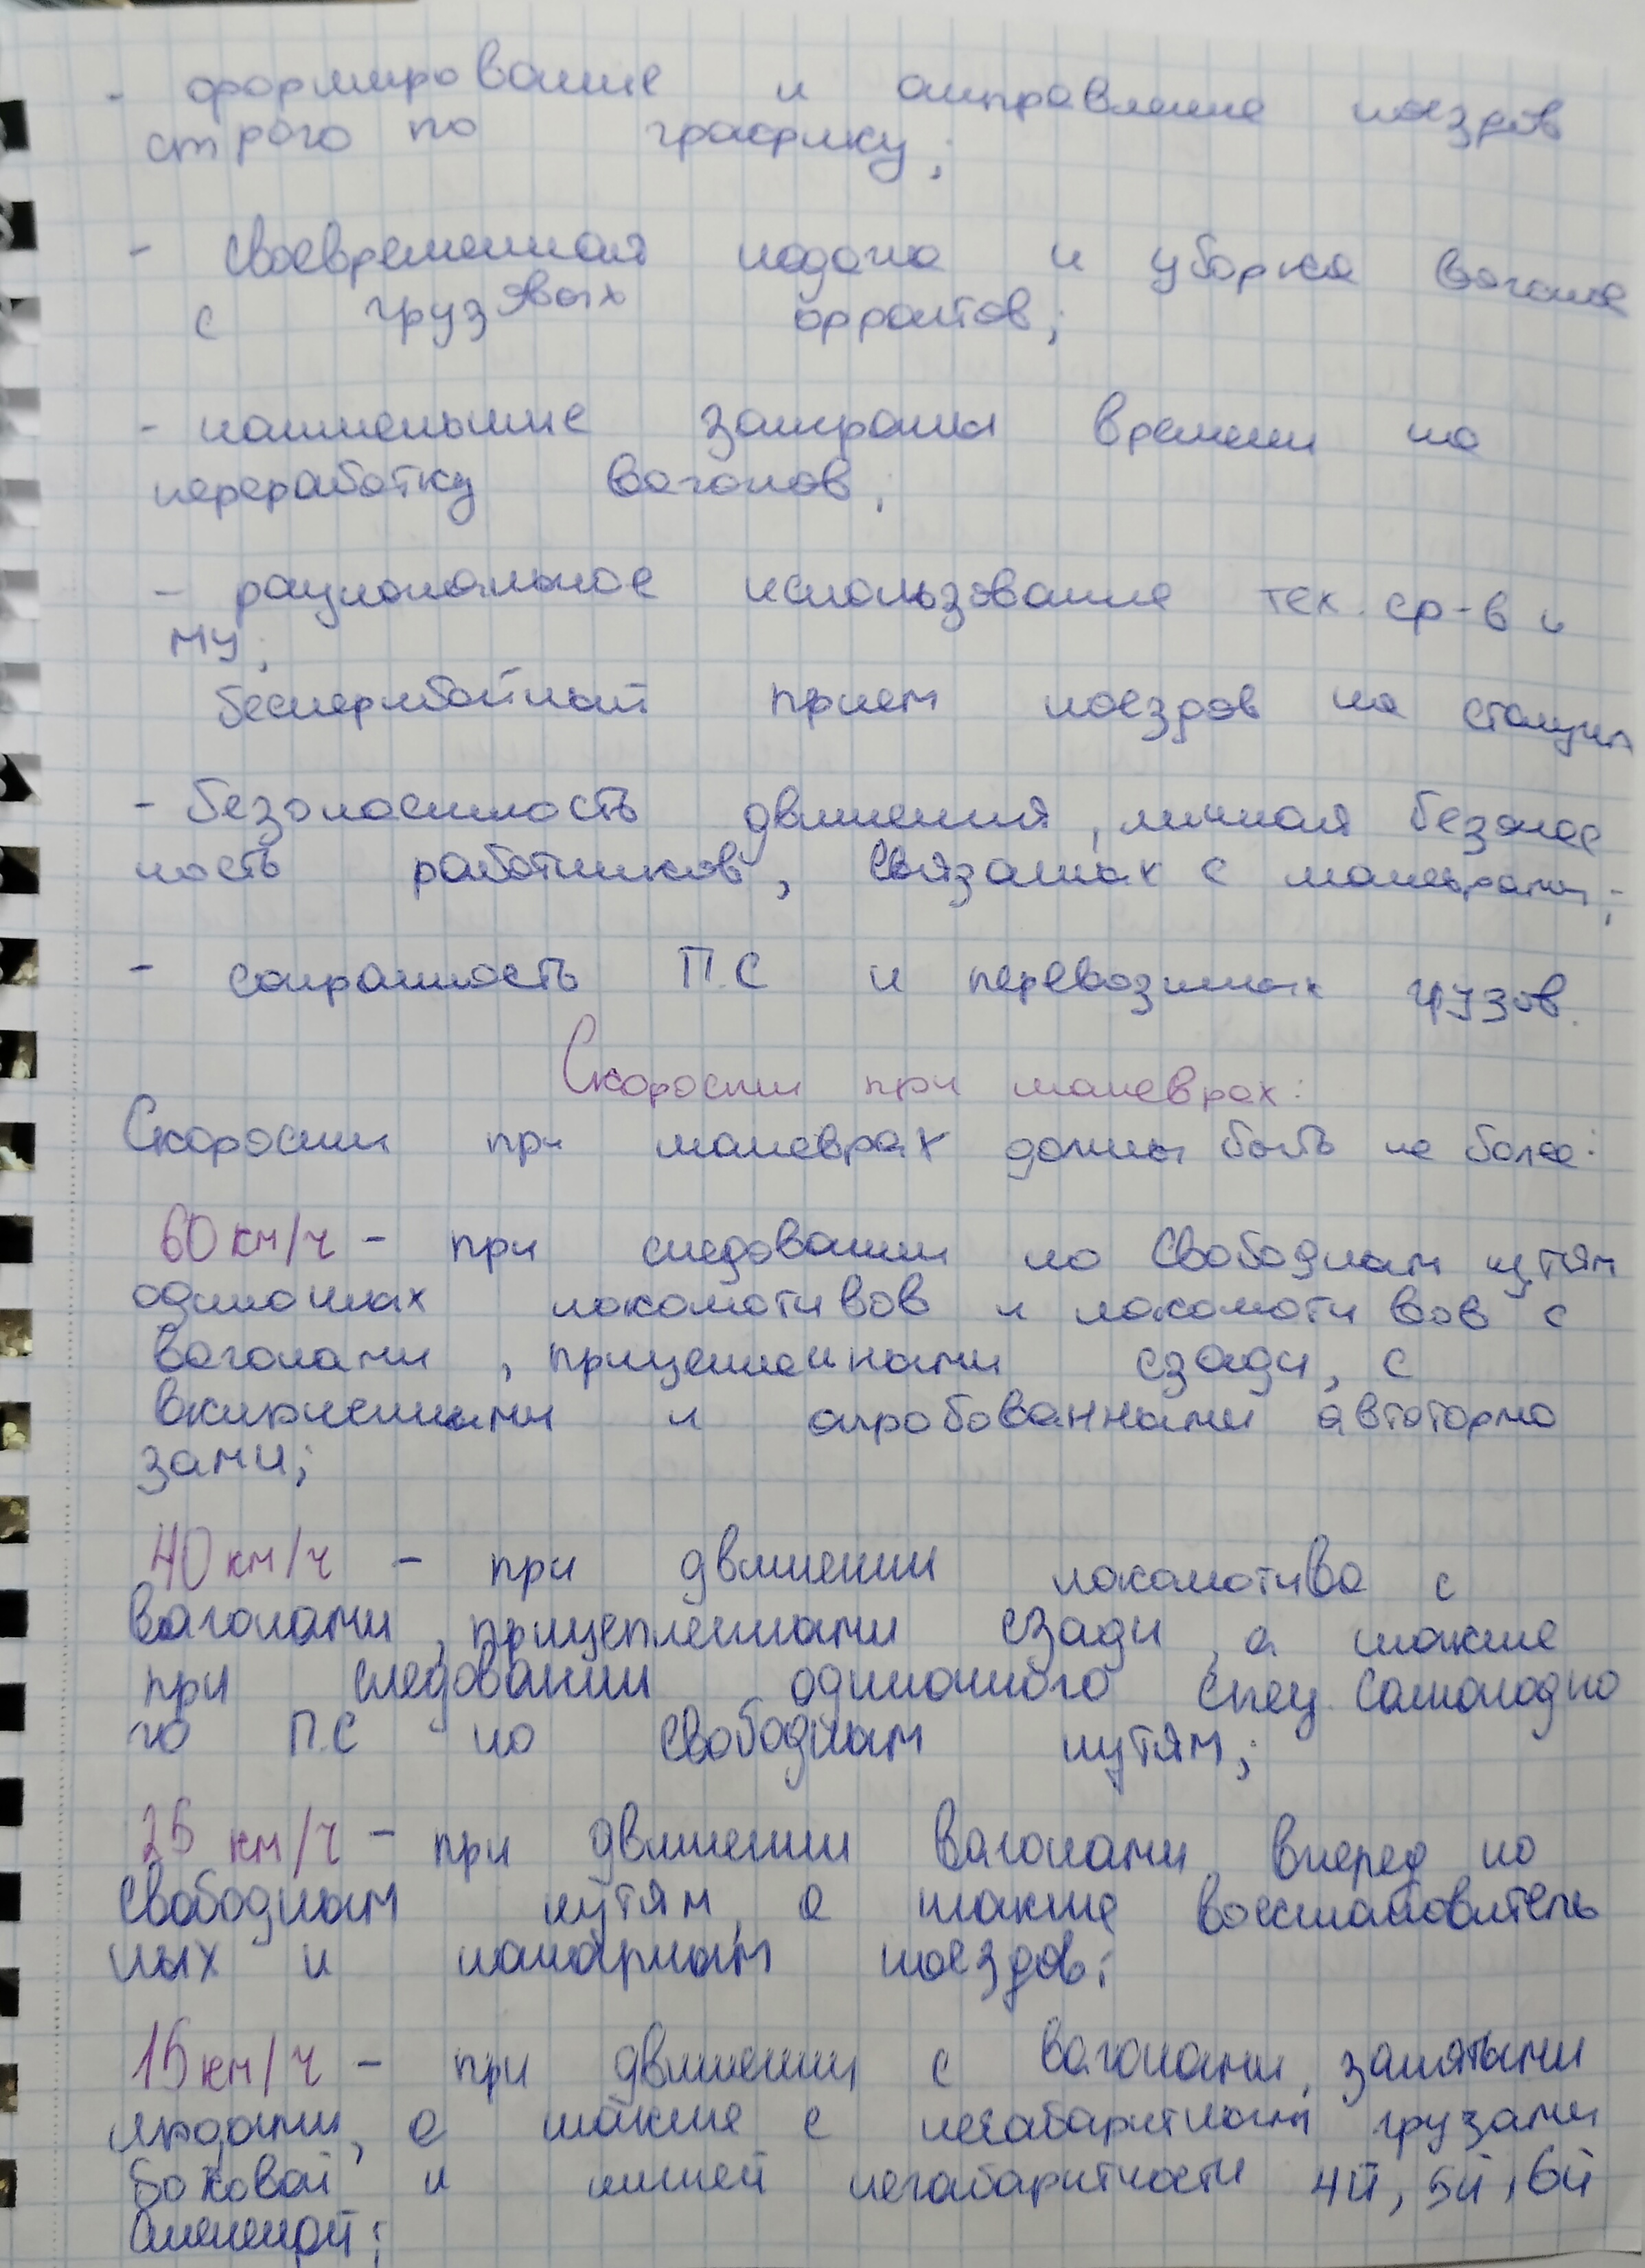 - формирование и отправление поездов
строго по графику;
- своевременная подача и уборка вагонов
с грузовых фронтов;
- наименьшие затраты времени на
переработку вагонов;
- рациональное использование тех. ср-в и
МУ;
бесперебойный прием поездов на станции
- безопасность движения, личная безопас
ность работников, связаных с маневрами;
- сохранность П.С и перевозимых грузов.
Скорости при маневрах:
Скорости при маневрах должны быть не более:
60 км/ч - при следовании по свободным путям
одиночных локомотивов и локомотивов с
вагонами, прицепленными сзади, с
включенными и опробованными автотормо
зами;
40 км/ч - при движении локомотива с
вагонами, прицепленными сзади, а также
при следовании одиночного спец. самоходно
го П.С по свободным путям;
25 км/ч - при движении вагонами вперед по
свободным путям, а также восстановитель
ных и пожарных поездов;
15 км/ч - при движении с вагонами, занятыми
людьми, а также с негабаритными грузами
боковой и нижней негабаритности 4й, 5й, 6й
степеней;